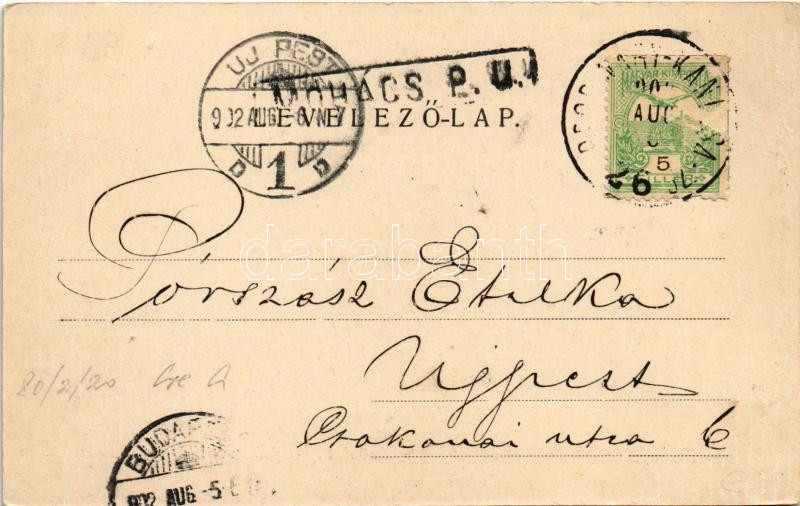 UJ PEST
902 AUG 6 N 7
D 1 D
MOHÁCS P. U.
LEVELEZŐ-LAP.
MAGYAR KIR. POSTA
AUG
5
FILLÉR
26
Pórszász Etelka
Ujpest
Csokonai utca 6
80/2/20
BUDAPEST
902 AUG -5
darabanth